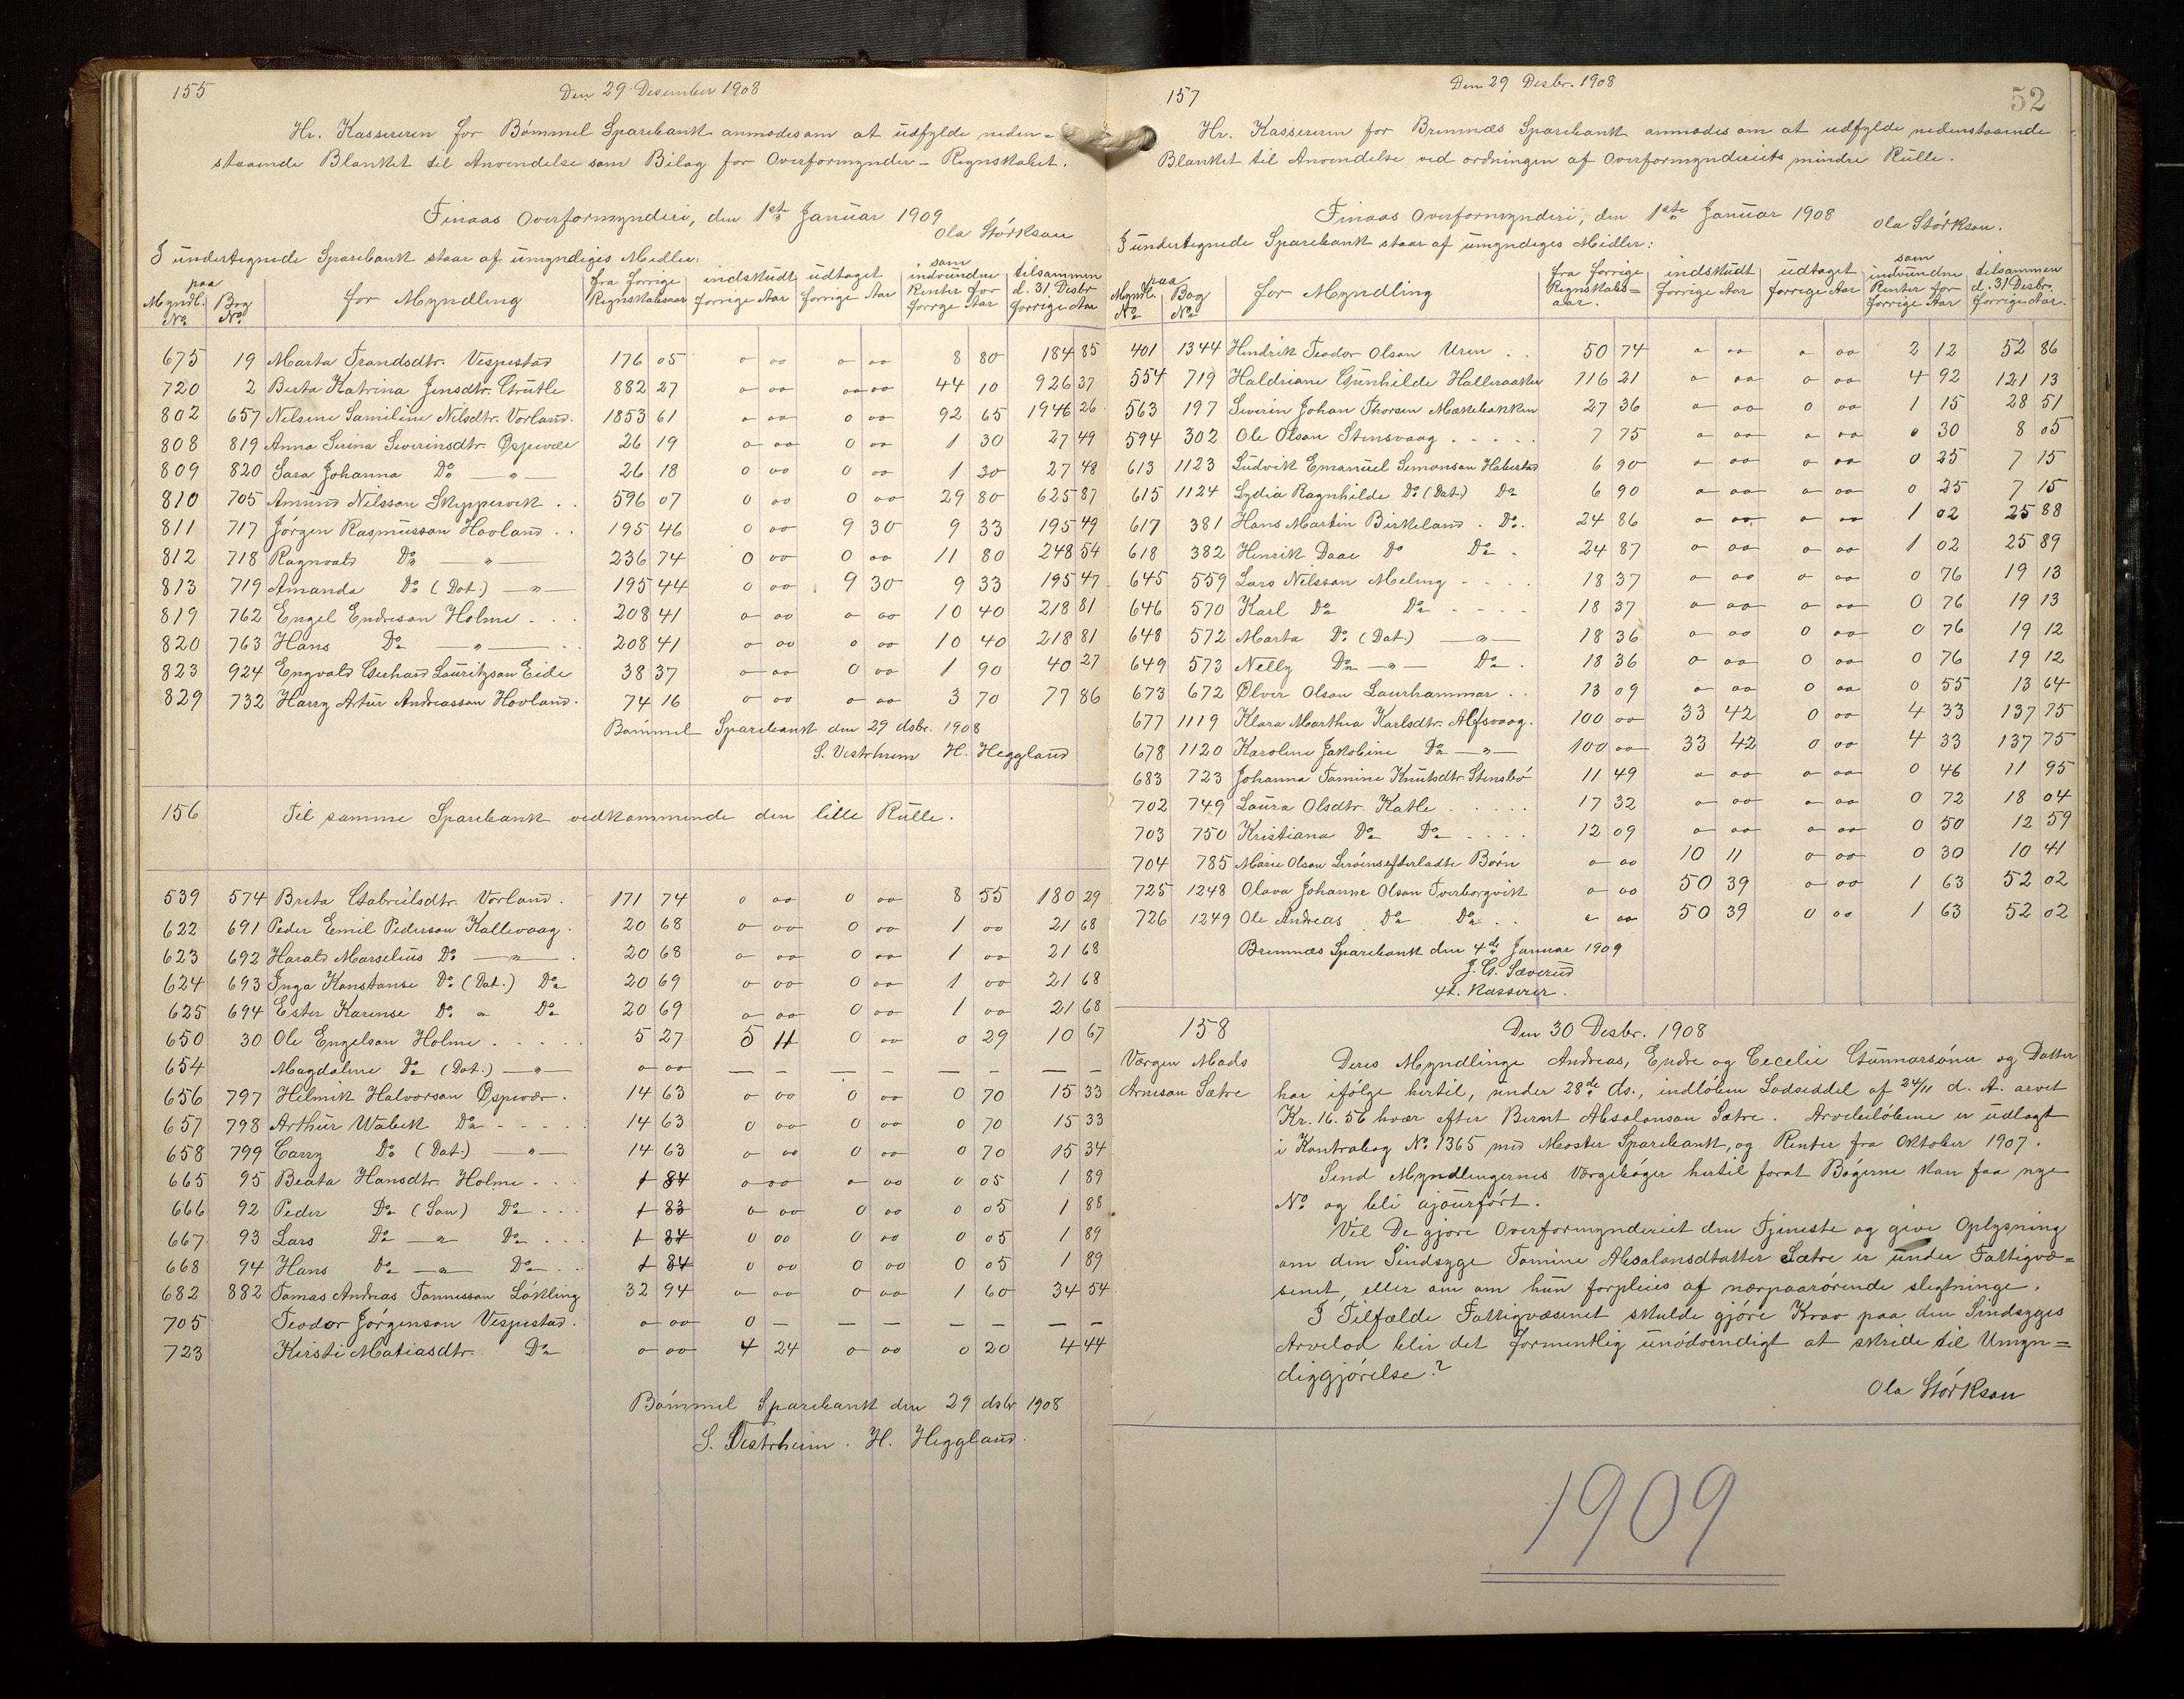 155
Den 29 Desember 1908
Hr. Kassereren for Bömmel Sparebank anmodes om at udfylde neden-
staaende Blanket til Anvendelse som Bilag for Overformynder-Regnskabet.
Finaas Overformynderi, den 1ste Januar 1909
Ola Störkson
I undertegnede Sparebank staar af umyndiges Midler:
paa Myndl. No | Bog No | for Myndling | fra forrige Regnskabsaar | indskudt forrige Aar | udtaget forrige Aar | som indvundne Renter for forrige Aar | tilsammen d. 31 Desbr forrige Aar
675 19 Marta Trandsdtr. Vespestad 176 05 0 00 0 00 8 80 184 85
720 2 Berta Katrina Jensdtr. Grutle 882 27 0 00 00 00 44 10 926 37
802 657 Nelsine Samiline Nilsdtr. Vorland. 1853 61 0 00 0 00 92 65 1946 26
808 819 Anna Serina Severinsdtr. Espevær 26 19 0 00 0 00 1 30 27 49
809 820 Sara Johanna Do — " — 26 18 0 00 0 00 1 30 27 48
810 705 Amund Nilsson Skippervik . . 596 07 0 00 0 00 29 80 625 87
811 717 Jörgen Rasmusson Hovland . . 195 46 0 00 9 30 9 33 195 49
812 718 Ragnvald Do — " — 236 74 0 00 0 00 11 80 248 54
813 719 Amanda Do (Dat.) — " — 195 44 0 00 9 30 9 33 195 47
819 762 Engel Endreson Holme . . . 208 41 0 00 0 00 10 40 218 81
820 763 Hans Do — " — . . 208 41 0 00 0 00 10 40 218 81
823 924 Engvald Gerhard Lauritzson Eide 38 37 0 00 0 00 1 90 40 27
829 732 Harry Artur Andreasson Hovland. 74 16 0 00 0 00 3 70 77 86
Bömmel Sparebank den 29 dsbr. 1908
S. Vestrheim H. Heggland
156 Til samme Sparebank vedkommende den lille Rulle.
539 574 Brita Gabrielsdtr. Vorland . 171 74 0 00 0 00 8 55 180 29
622 691 Peder Emil Pederson Kallevaag . 20 68 0 00 0 00 1 00 21 68
623 692 Harald Marselius Do — " — . 20 68 0 00 0 00 1 00 21 68
624 693 Inga Konstanse Do (Dat.) Do 20 69 0 00 0 00 1 00 21 68
625 694 Ester Karense Do " Do 20 69 0 00 0 00 1 00 21 68
650 30 Ole Engelson Holme . . . . . 5 27 5 11 0 00 0 29 10 67
654 Magdalene Do (Dat.) — " — 0 00 — — — — — — — —
656 797 Helmik Halvorson Espevær . 14 63 0 00 0 00 0 70 15 33
657 798 Arthur Walick Do - - - - - 14 63 0 00 0 00 0 70 15 33
658 799 Carry Do (Dat.) — " — 14 63 0 00 0 00 0 70 15 34
665 95 Beata Hansdtr. Holme . . . 1 84 0 00 0 00 0 05 1 89
666 92 Peder Do (Søn) Do . . . 1 83 0 00 0 00 0 05 1 88
667 93 Lars Do — " — Do . . . 1 84 0 00 0 00 0 05 1 89
668 94 Hans Do — " — Do . . 1 84 0 00 0 00 0 05 1 89
682 882 Tomas Andreas Tønnesson Lökling 32 94 0 00 0 00 1 60 34 54
705 Teodor Jörgenson Vespestad . 0 00 0 — — — — — — —
723 Kirsti Matiasdtr. Do 0 00 4 24 0 00 0 20 4 44
Bömmel Sparebank den 29 dsbr 1908
S. Vestrheim . H. Heggland.
157
Den 29 Desbr. 1908
52
Hr. Kassereren for Bremnæs Sparebank anmodes om at udfylde nedenstaaende
Blanket til Anvendelse ved ordningen af Overformynderiets mindre Rulle.
Finaas Overformynderi, den 1ste Januar 1908 Ola Störkson.
I undertegnede Sparebank staar af umyndiges Midler:
paa Myndl. No | Bog No | for Myndling | fra forrige Regnskabs=aar. | indskudt forrige Aar | udtaget forrige Aar | som indvundne Renter for forrige Aar | tilsammen d. 31 Desbr. forrige Aar.
401 1344 Hendrik Teodor Olson Uren . . 50 74 0 00 0 00 2 12 52 86
554 719 Haldriane Gunhilde Halleraaker 116 21 0 00 0 00 4 92 121 13
563 197 Severin Johan Thorsen Mækebakken 27 36 0 00 0 00 1 15 28 51
594 302 Ole Olson Stensvaag . . . . . 7 75 0 00 0 00 0 30 8 05
613 1123 Ludvik Emanuel Semonson Habestad 6 90 0 00 0 00 0 25 7 15
615 1124 Lydia Ragnhilde Do (Dat.) Do 6 90 0 00 0 00 0 25 7 15
617 381 Hans Martin Birkeland . Do. 24 86 0 00 0 00 1 02 25 88
618 382 Henrik Daae Do Do . 24 87 0 00 0 00 1 02 25 89
645 559 Lars Nilsson Meling . . . . 18 37 0 00 0 00 0 76 19 13
646 570 Karl Do Do - - - - 18 37 0 00 0 00 0 76 19 13
648 572 Marta Do (Dat.) — " — 18 36 0 00 0 00 0 76 19 12
649 573 Nelly Do — " — Do . 18 36 0 00 0 00 0 76 19 12
673 672 Ølver Olson Laurhammar . . 13 09 0 00 0 00 0 55 13 64
677 1119 Klara Marthea Karlsdtr. Alfsvaag. 100 00 33 42 0 00 4 33 137 75
678 1120 Karoline Jakobine Do — " — 100 00 33 42 0 00 4 33 137 75
683 723 Johanna Tomine Knutsdtr. Stensbö 11 49 0 00 0 00 0 46 11 95
702 749 Laura Olsdtr. Katle . . . . . 17 32 0 00 0 00 0 72 18 04
703 750 Kristiana Do Do . . . . 12 09 0 00 0 00 0 50 12 59
704 785 Marie Olson efterladte Börn 0 00 10 11 0 00 0 30 10 41
725 1248 Olava Johanne Olson Tverborgvik 0 00 50 39 0 00 1 63 52 02
726 1249 Ole Andreas Do Do . . 0 00 50 39 0 00 1 63 52 02
Bremnæs Sparebank den 4de Januar 1909
J. G. Sæverud
ft. Kasserer.
158
Den 30 Desbr. 1908
Værgen Mads
Arneson Sætre
Deres Myndlinge Andreas, Endre og Cecelie Gunnarsöner og Datter
har ifölge hertil, under 28de ds., indlöben Lodseddel af 24/11 d. A. arvet
Kr. 16.56 hvær efter Bernt Absalonson Sætre. Arvebelöbene er udlagt
i Kontrabog No 1365 med Moster Sparebank, og Renter fra Oktober 1907.
Send Myndlingernes Værgeböger hertil forat Bögerne kan faa nye
No og bli ajourfört.
Vil De gjöre Overformynderiet den Tjeneste og give Oplysning
om den Sindsyge Tomine Absalonsdtatter Sætre er under Fattigvæ=
senet, eller om om hun forpleies af nærpaarörende slegtninge.
I Tilfælde Fattigvæsenet skulde gjöre Krav paa den Sindsyges
Arvelod blir det formentlig unödvendigt at skride til Umyn=
diggjörelse?
Ola Störkson
1909